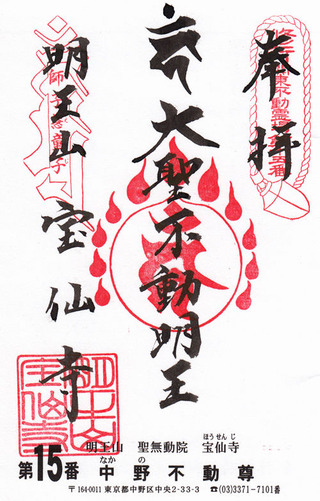 奉拝
大聖不動明王
明王山 宝仙寺
明王山 聖無動院 宝仙寺
ほうせんじ
第15番 中野不動尊
なかの
〒164-0011 東京都中野区中央2-33-3 ☎(03)3371-7101番